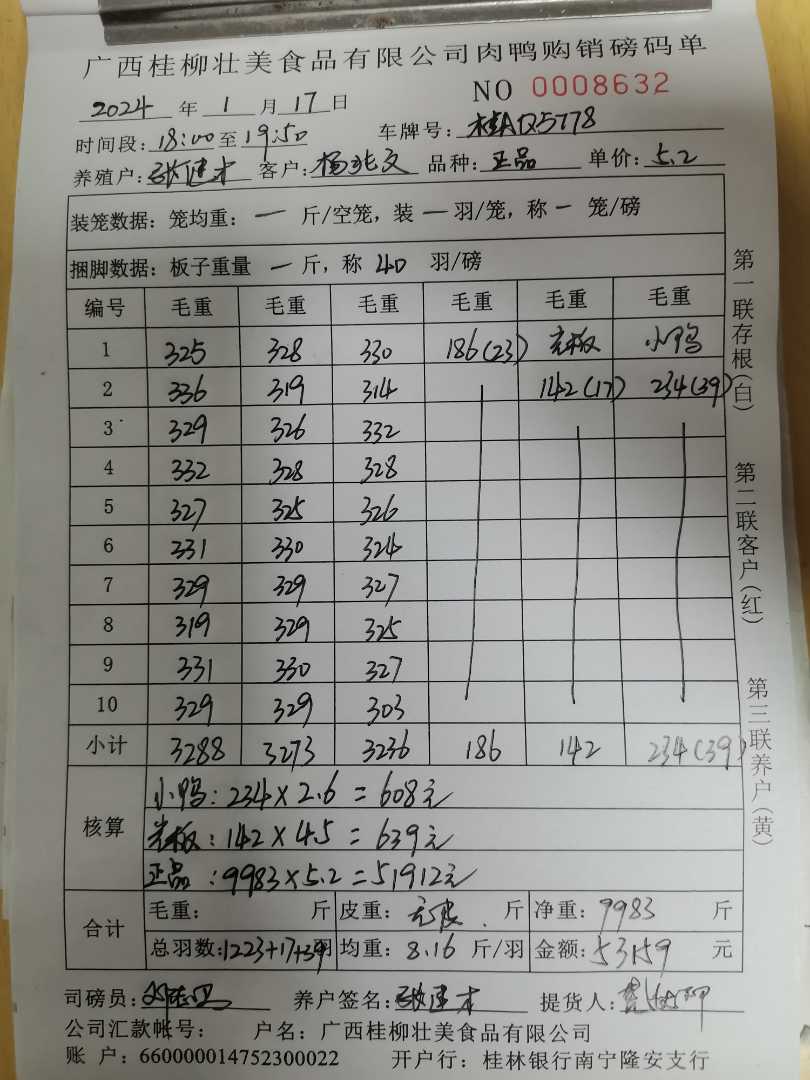 广西桂柳壮美食品有限公司肉鸭购销磅码单
NO 0008632
2024 年 1 月 17 日
时间段: 18:00 至 19:50 车牌号: 桂AQ5778
养殖户: 张建才 客户: 杨兆文 品种: 正品 单价: 5.2
装笼数据: 笼均重: 一 斤/空笼, 装 一 羽/笼, 称 一 笼/磅
捆脚数据: 板子重量 一 斤, 称 40 羽/磅
编号 毛重 毛重 毛重 毛重 毛重 毛重
1 325 328 330 186(23) 光板 小鸭
2 336 319 314 142(17) 234(39)
3 329 326 332
4 332 328 328
5 327 325 326
6 331 330 324
7 329 329 327
8 319 329 325
9 331 330 327
10 329 329 303
小计 3288 3273 3236 186 142 234(39)
核算
小鸭: 234×2.6=608元
光板: 142×4.5=639元
正品: 9983×5.2=51912元
合计
毛重: 斤 皮重: 斤 净重: 9983 斤
总羽数: 1223+17+39 羽 均重: 8.16 斤/羽 金额: 53159 元
司磅员: 养户签名: 张建才 提货人:
公司汇款帐号: 户名: 广西桂柳壮美食品有限公司
账 户: 660000014752300022 开户行: 桂林银行南宁隆安支行
第一联存根(白)
第二联客户(红)
第三联养户(黄)